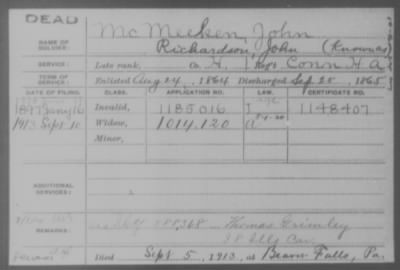 DEAD
McMecken, John
NAME OF SOLDIER: Richardson, John (Known as)
SERVICE: Late rank, Co. H, 1" Regt Conn H A
TERM OF SERVICE: Enlisted Aug 24, 1864 Discharged Sep. 25, 1865
DATE OF FILING. CLASS. APPLICATION NO. LAW. CERTIFICATE NO.
1897 Jany 16 Invalid, 1185016 1148407
1913 Sept 10 Widow, 1014.120
Minor,
ADDITIONAL SERVICES:
REMARKS: Thomas Grimley
Cav.
Died Sept 5, 1913, at Beaver Falls, Pa.